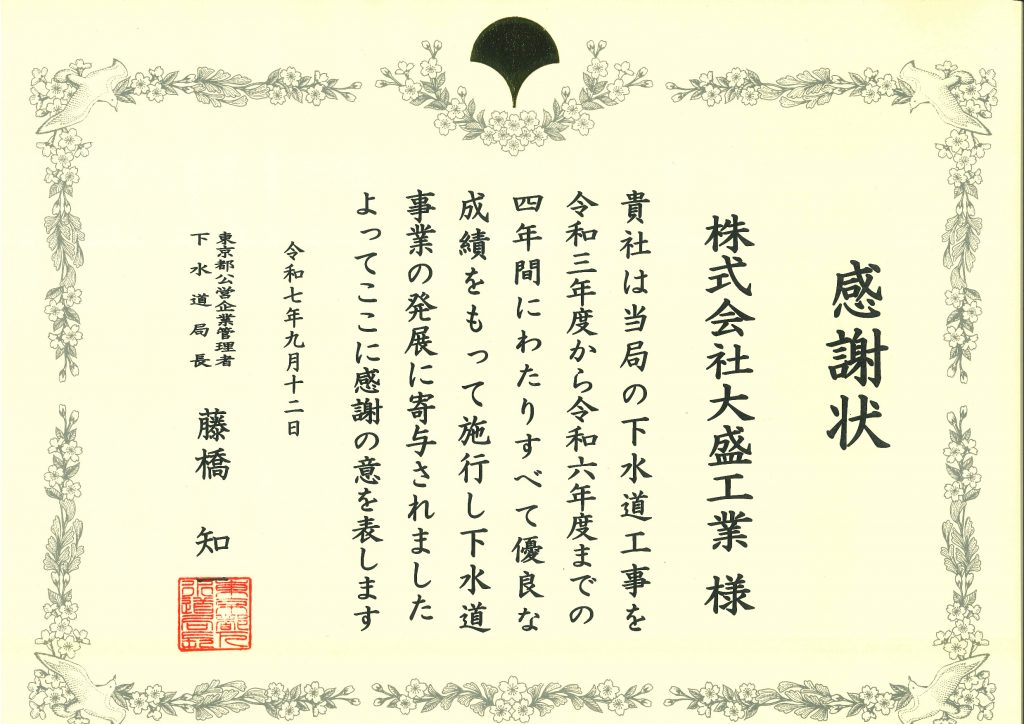 感謝状
株式会社大盛工業 様
貴社は当局の下水道工事を
令和三年度から令和六年度までの
四年間にわたりすべて優良な
成績をもって施行し下水道
事業の発展に寄与されました
よってここに感謝の意を表します
令和七年九月十二日
東京都公営企業管理者
下水道局長
藤橋 知一